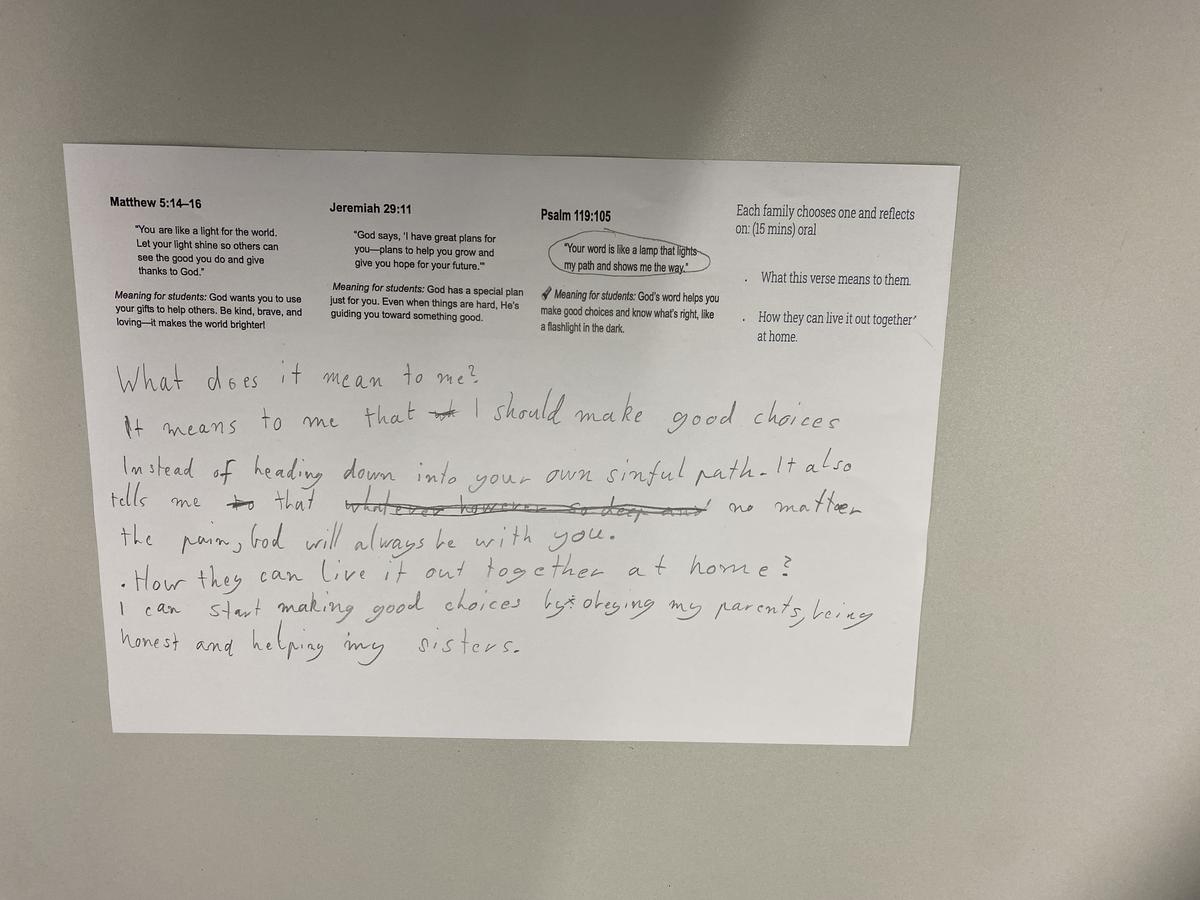 Matthew 5:14–16
"You are like a light for the world.
Let your light shine so others can
see the good you do and give
thanks to God."
Meaning for students: God wants you to use
your gifts to help others. Be kind, brave, and
loving—it makes the world brighter!
Jeremiah 29:11
"God says, 'I have great plans for
you—plans to help you grow and
give you hope for your future.'"
Meaning for students: God has a special plan
just for you. Even when things are hard, He's
guiding you toward something good.
Psalm 119:105
"Your word is like a lamp that lights
my path and shows me the way."
Meaning for students: God's word helps you
make good choices and know what's right, like
a flashlight in the dark.
Each family chooses one and reflects
on: (15 mins) oral
. What this verse means to them.
. How they can live it out together
at home.
What does it mean to me?
It means to me that I should make good choices
Instead of heading down into your own sinful path. It also
tells me to that whatever however so deep and no matter
the pain, God will always be with you.
. How they can live it out together at home?
I can start making good choices by obeying my parents, being
honest and helping my sisters.